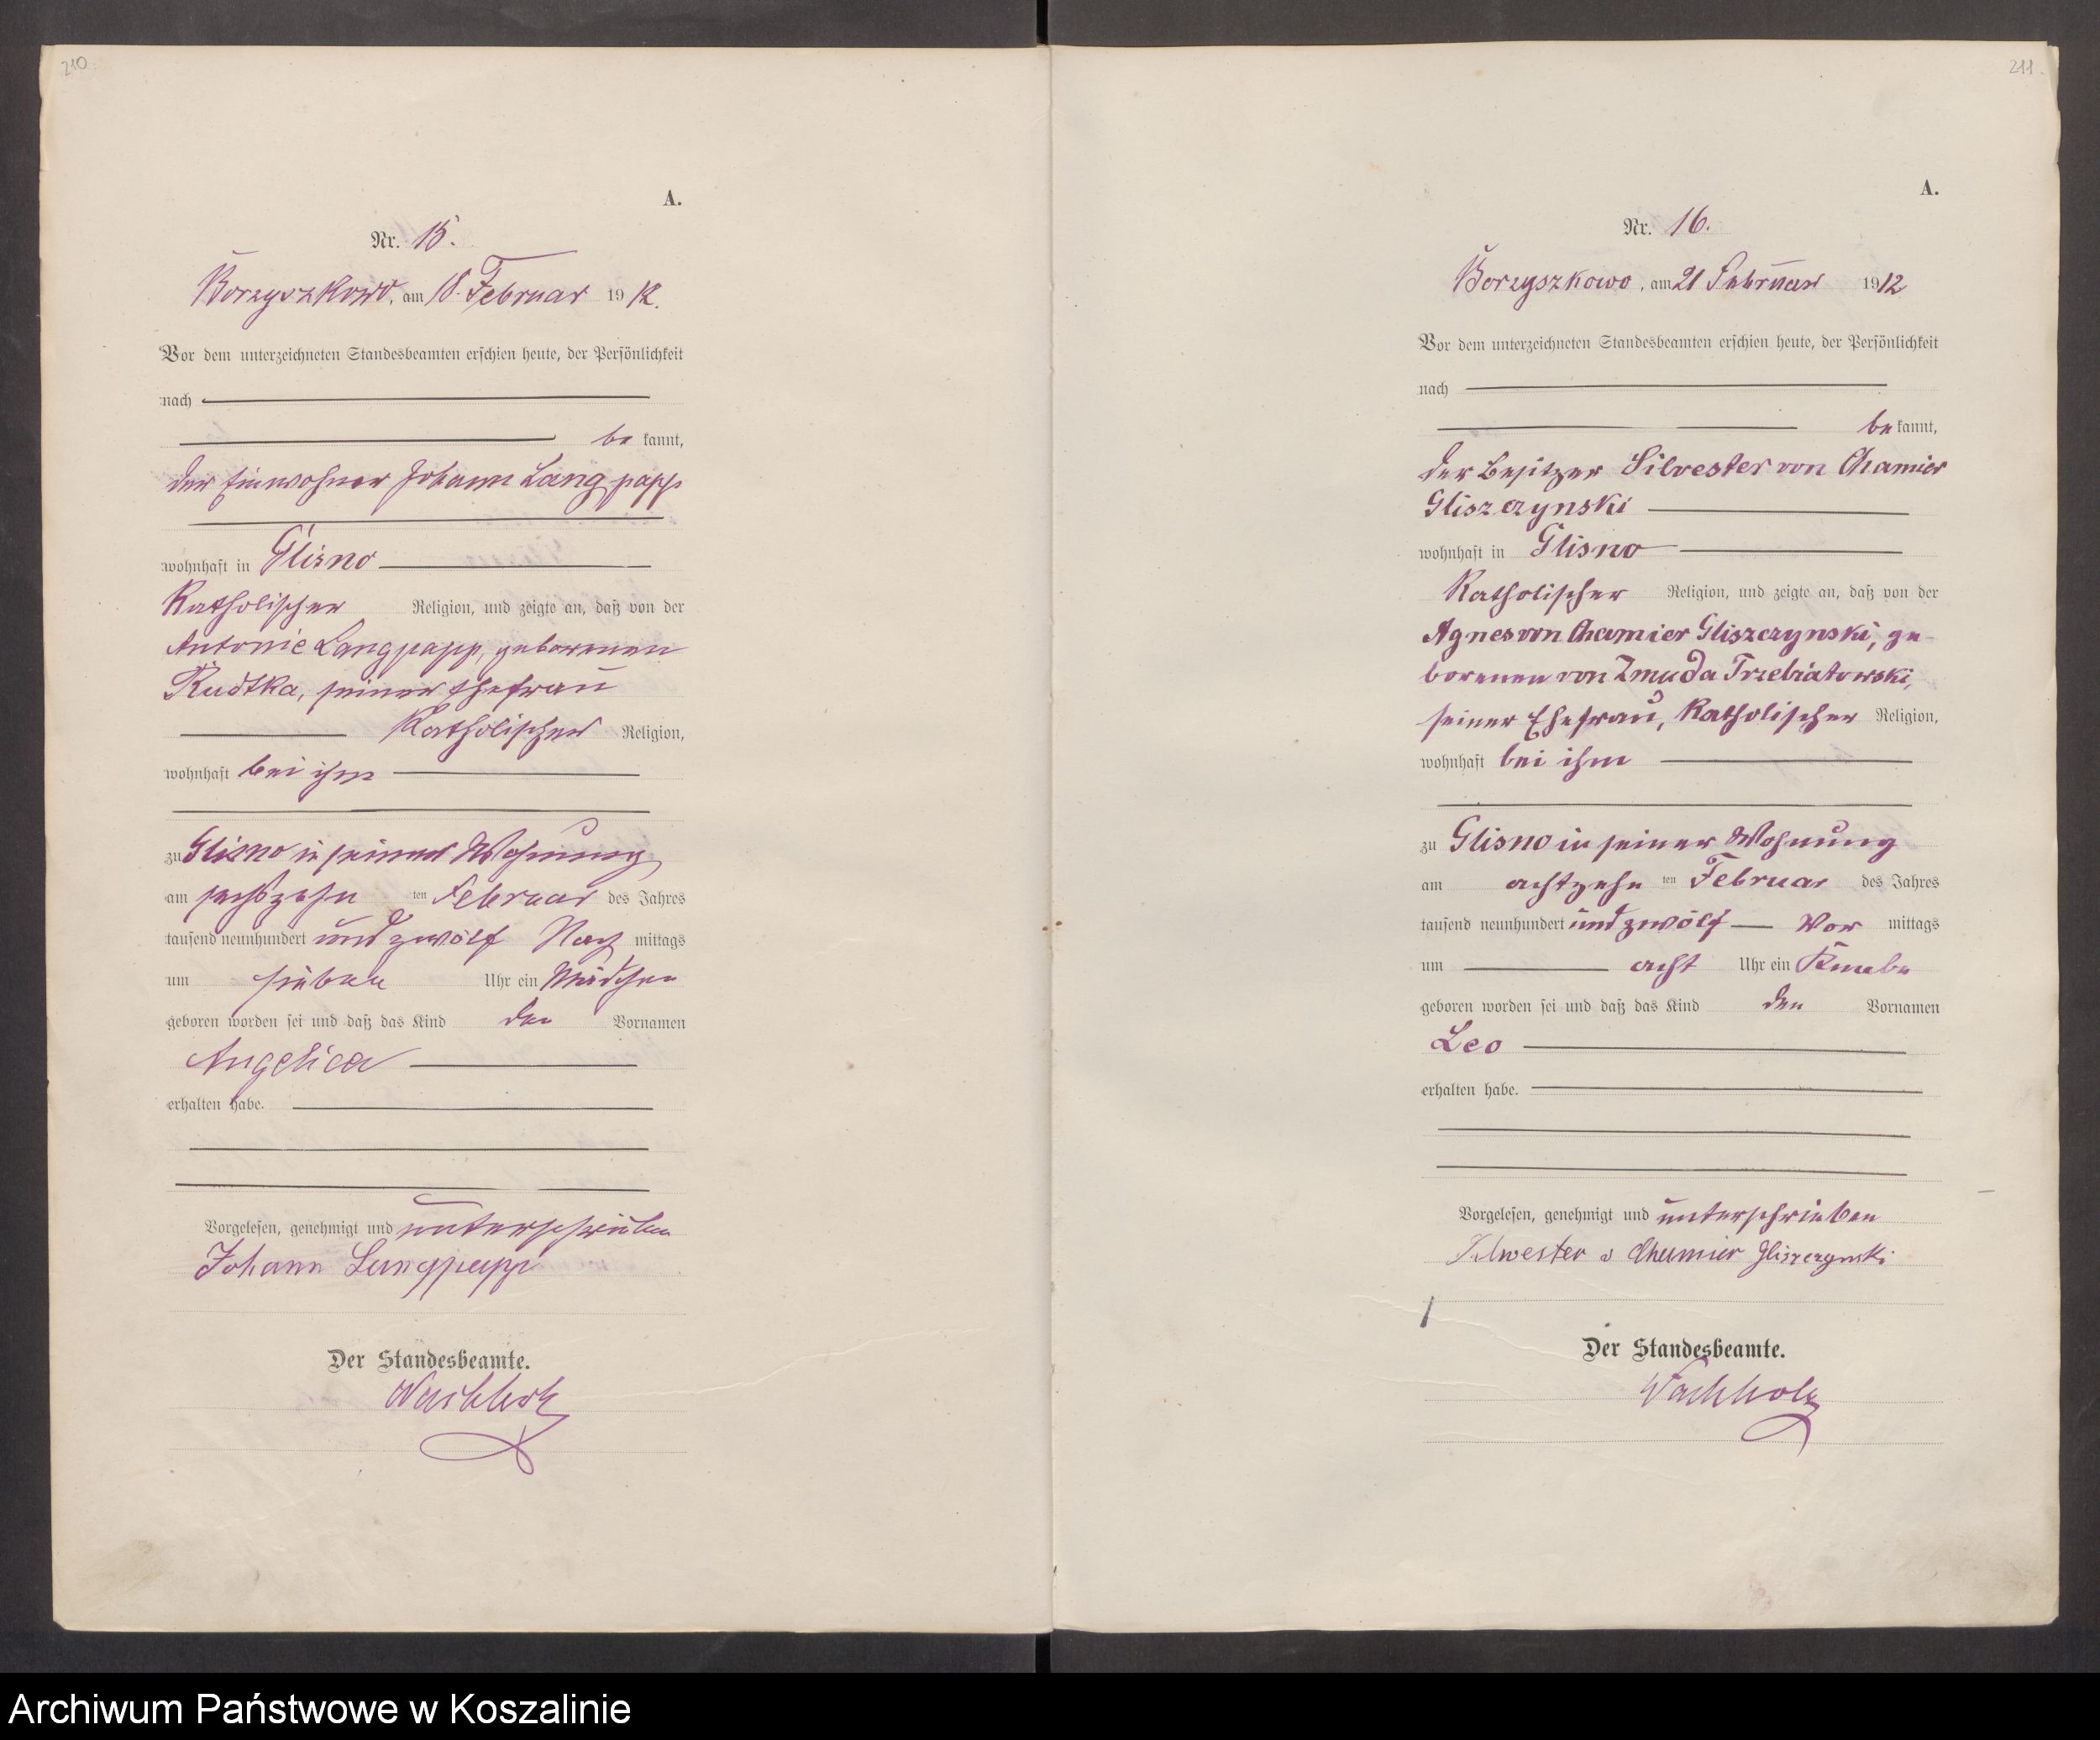 210.
A.
Nr. 15.
Borzyszkowo, am 18. Februar 1912.
Vor dem unterzeichneten Standesbeamten erschien heute, der Persönlichkeit
nach
be kannt,
der Einwohner Johann Langpapp
wohnhaft in Glisno
katholischer Religion, und zeigte an, daß von der
Antonie Langpapp, geborenen
Rudtka, seiner Ehefrau
katholischer Religion,
wohnhaft bei ihm
zu Glisno in seiner Wohnung
am sechszehn ten Februar des Jahres
tausend neunhundert und zwölf Nach mittags
um sieben Uhr ein Mädchen
geboren worden sei und daß das Kind den Vornamen
Angelica
erhalten habe.
Vorgelesen, genehmigt und unterschrieben
Johann Langpapp
Der Standesbeamte.
Wachholz
211.
A.
Nr. 16.
Borzyszkowo, am 21 Februar 1912
Vor dem unterzeichneten Standesbeamten erschien heute, der Persönlichkeit
nach
be kannt,
der Besitzer Silvester von Chamier
Gliszczynski
wohnhaft in Glisno
katholischer Religion, und zeigte an, daß von der
Agnes von Chamier Gliszczynski, ge-
borenen von Zmuda Trzebiatowski,
seiner Ehefrau, katholischer Religion,
wohnhaft bei ihm
zu Glisno in seiner Wohnung
am achtzehn ten Februar des Jahres
tausend neunhundert und zwölf Vor mittags
um acht Uhr ein Knabe
geboren worden sei und daß das Kind den Vornamen
Leo
erhalten habe.
Vorgelesen, genehmigt und unterschrieben
Silwester v Chamier Gliszczynski
Der Standesbeamte.
Wachholz
Archiwum Państwowe w Koszalinie